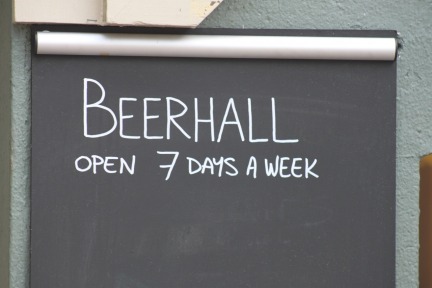 BEERHALL
OPEN 7 DAYS A WEEK